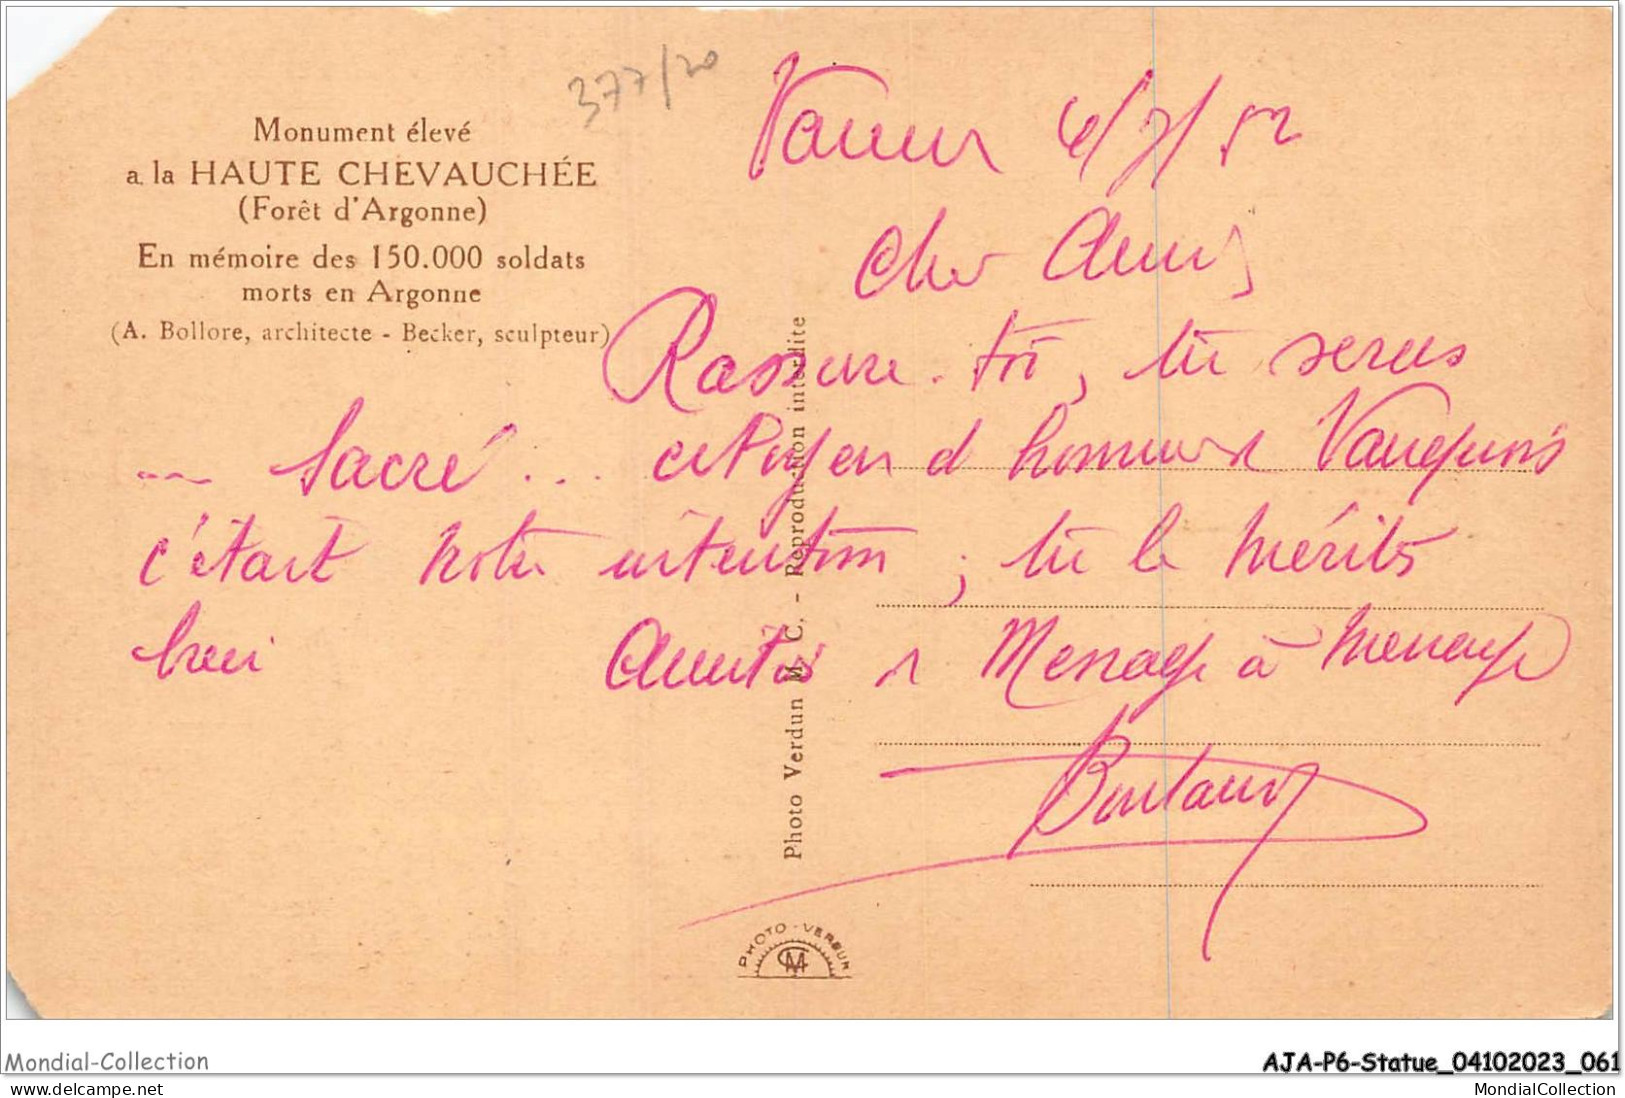 377/20
Monument élevé
a la HAUTE CHEVAUCHÉE
(Forêt d'Argonne)
En mémoire des 150.000 soldats
morts en Argonne
(A. Bollore, architecte - Becker, sculpteur)
/52
Cher Amis
Rassure-toi, tu seras
... Sacré ... citoyen d'honneur Vauquois
c'était notre intention, tu le mérites
bien Amitiés Menage à Menage
Photo Verdun M. C. - Reproduction interdite
PHOTO-VERDUN
MC
Mondial-Collection
AJA-P6-Statue_04102023_061
MondialCollection
MondialCollection